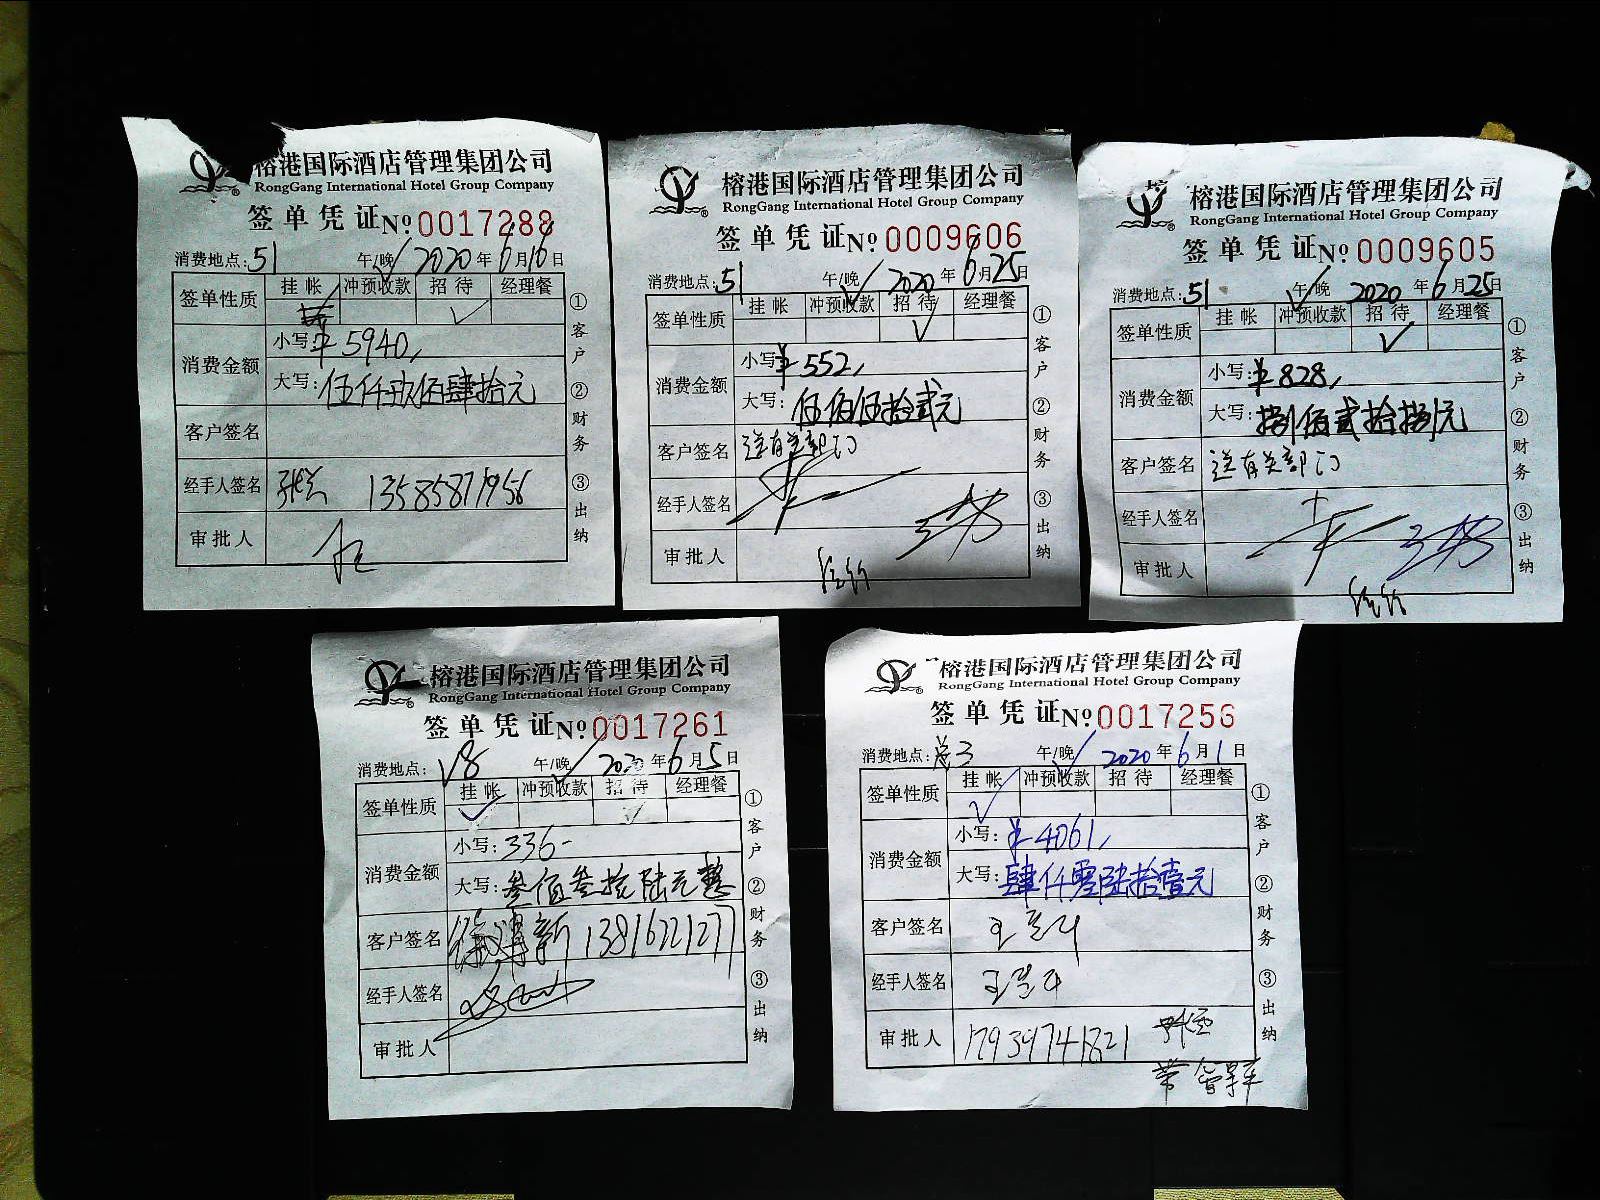 榕港国际酒店管理集团公司
RongGang International Hotel Group Company
签单凭证 №0017288
消费地点:51 午/晚 2020年6月16日
签单性质 挂帐 冲预收款 招待 经理餐
消费金额 小写:¥5940,
大写:伍仟玖佰肆拾元
客户签名
经手人签名 13585871956
审批人
①客户 ②财务 ③出纳
榕港国际酒店管理集团公司
RongGang International Hotel Group Company
签单凭证 №0009606
消费地点:51 午/晚 2020年6月25日
签单性质 挂帐 冲预收款 招待 经理餐
消费金额 小写:¥552,
大写:伍佰伍拾贰元
客户签名 送有关部门
经手人签名
审批人
①客户 ②财务 ③出纳
榕港国际酒店管理集团公司
RongGang International Hotel Group Company
签单凭证 №0009605
消费地点:51 午/晚 2020年6月25日
签单性质 挂帐 冲预收款 招待 经理餐
消费金额 小写:¥828,
大写:捌佰贰拾捌元
客户签名 送有关部门
经手人签名
审批人
①客户 ②财务 ③出纳
榕港国际酒店管理集团公司
RongGang International Hotel Group Company
签单凭证 №0017261
消费地点:V8 午/晚 2020年6月5日
签单性质 挂帐 冲预收款 招待 经理餐
消费金额 小写:336-
大写:叁佰叁拾陆元整
客户签名 13816221277
经手人签名
审批人
①客户 ②财务 ③出纳
榕港国际酒店管理集团公司
RongGang International Hotel Group Company
签单凭证 №0017256
消费地点: 午/晚 2020年6月1日
签单性质 挂帐 冲预收款 招待 经理餐
消费金额 小写:¥4061,
大写:肆仟零陆拾壹元
客户签名
经手人签名
审批人
①客户 ②财务 ③出纳